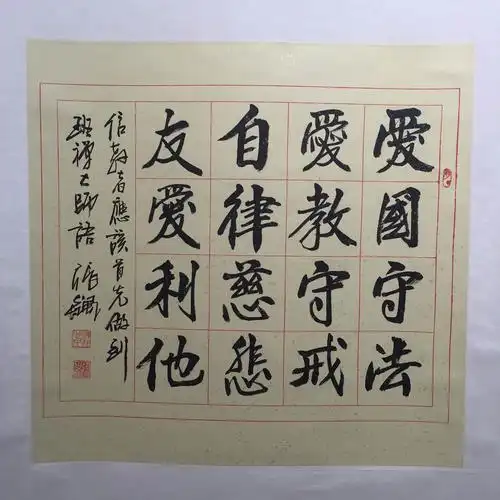 愛國守法
愛教守戒
自律慈悲
友愛利他
信教者應該首先做到
班禪大師語 張